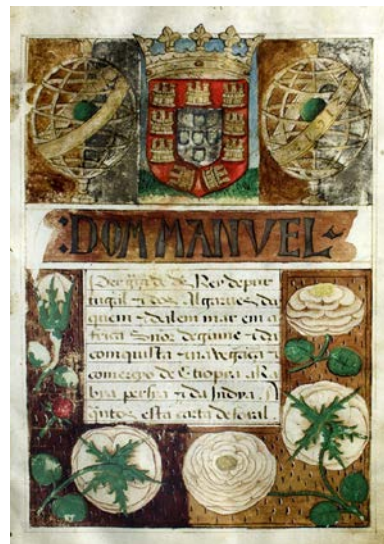 :DOM MANVEL:
Per graça de Rey depor
tugal ⁊ dos Algarues da
quem ⁊ dalem mar em a
frica Senõr deguine ⁊ da
comquista ⁊ navegaçã ⁊
comerçio de Etiopia aRa
bya persia ⁊ da Jndya A
qñtos esta carta deforal